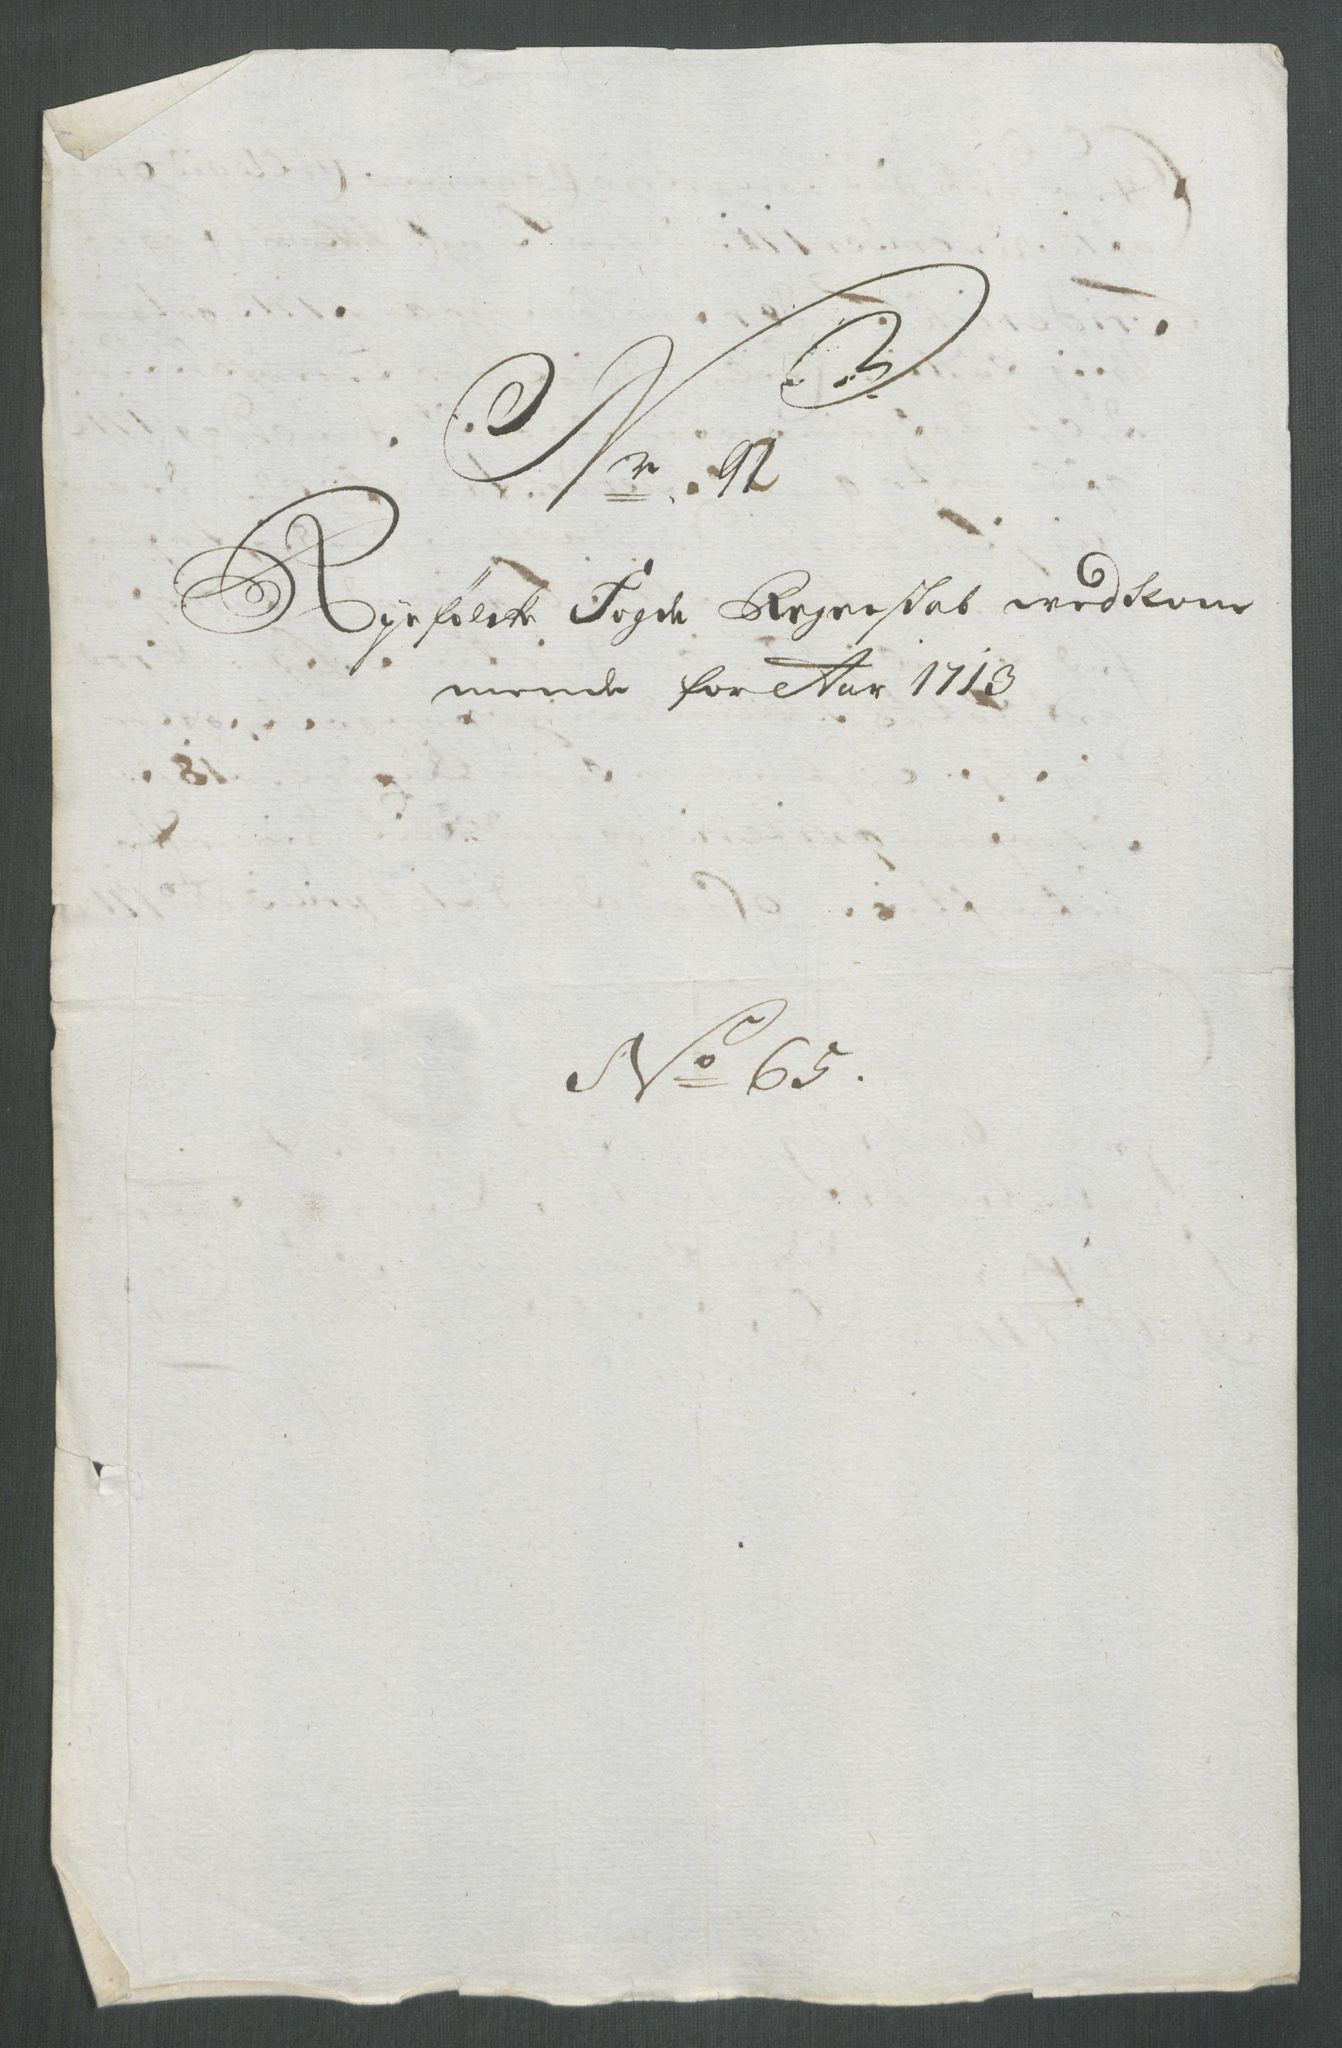 Nr. 92
Ryefölcke Fogde Regenskab wedkom
mende for Aar 1713
No 65.